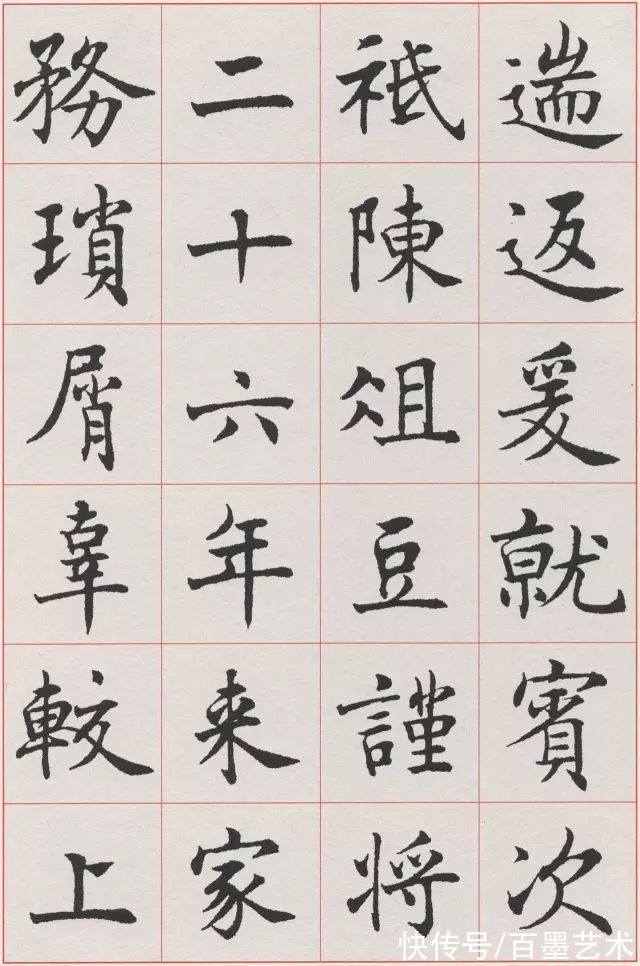 遄返爰就賓次
祗陳俎豆謹将
二十六年来家
務瑣屑辜較上
快传号/百墨艺术